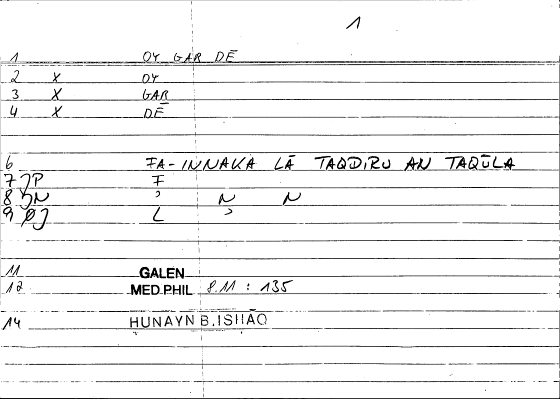 1
1 OY GAR DĒ
2 X OY
3 X GAR
4 X DĒ
6 FA-INNAKA LĀ TAQDIRU AN TAQŪLA
7 P F
8 N ʾ N N
9 Ø L ʾ
11 GALEN
12 MED.PHIL 8.11 : 135
14 HUNAYN B.ISHĀQ